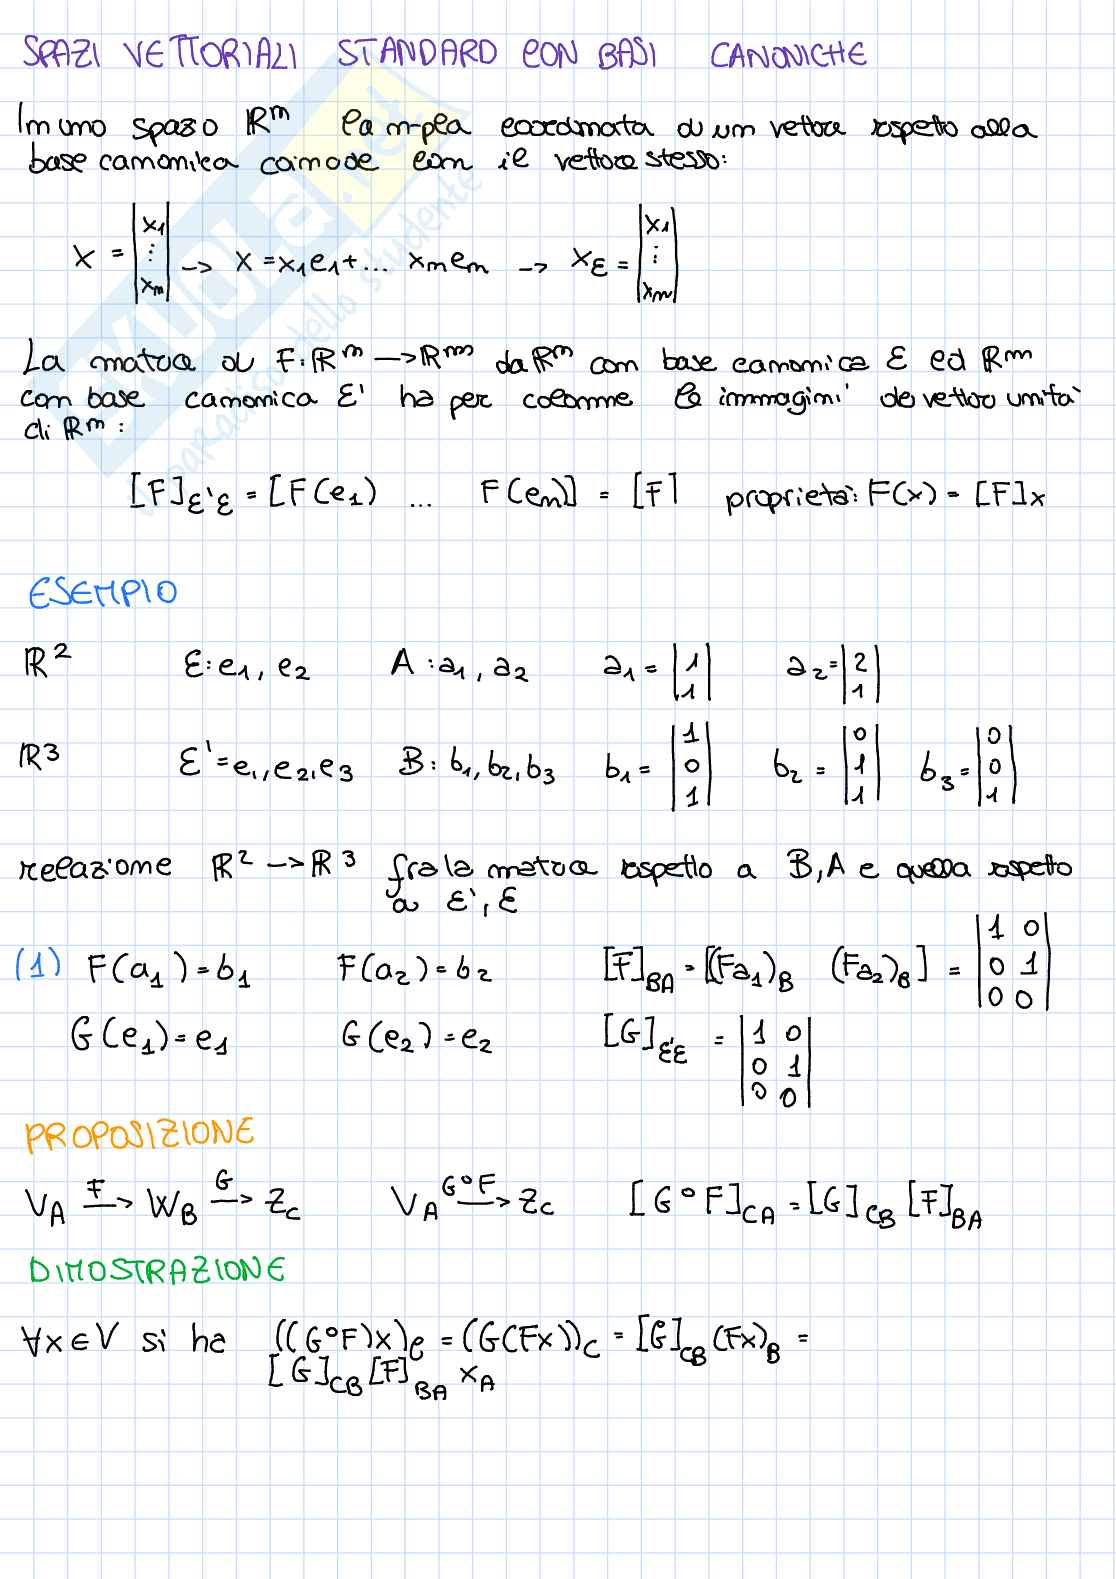 SPAZI VETTORIALI STANDARD CON BASI CANONICHE
In uno spazio ℝⁿ la n-pla coordinata di un vettore rispetto alla
base canonica coincide con il vettore stesso:
x = |x₁ ⋮ xₙ| -> x = x₁e₁+... xₙeₙ -> x_ℰ = |x₁ ⋮ xₙ|
La matrice di F: ℝⁿ —> ℝᵐ da ℝⁿ con base canonica ℰ ed ℝᵐ
con base canonica ℰ' ha per colonne le immagini dei vettori unità
di ℝⁿ:
[F]_ℰ'ℰ = [F(e₁) ... F(eₙ)] = [F] proprietà: F(x) = [F]x
ESEMPIO
ℝ² ℰ: e₁, e₂ A: a₁, a₂ a₁ = |1 1| a₂ = |2 1|
ℝ³ ℰ' = e₁, e₂, e₃ B: b₁, b₂, b₃ b₁ = |1 0 1| b₂ = |0 1 1| b₃ = |0 0 1|
relazione ℝ² —> ℝ³ fra la matrice rispetto a B, A e quella rispetto
a ℰ', ℰ
(1) F(a₁) = b₁ F(a₂) = b₂ [F]_BA = [(Fa₁)_B (Fa₂)_B] = |1 0 / 0 1 / 0 0|
G(e₁) = e₁ G(e₂) = e₂ [G]_ℰ'ℰ = |1 0 / 0 1 / 0 0|
PROPOSIZIONE
V_A —F—> W_B —G—> Z_C V_A —G∘F—> Z_C [G∘F]_CA = [G]_CB [F]_BA
DIMOSTRAZIONE
∀x∈V si ha ((G∘F)x)_C = (G(Fx))_C = [G]_CB (Fx)_B =
[G]_CB [F]_BA x_A
SKUOLA.net
il paradiso dello studente